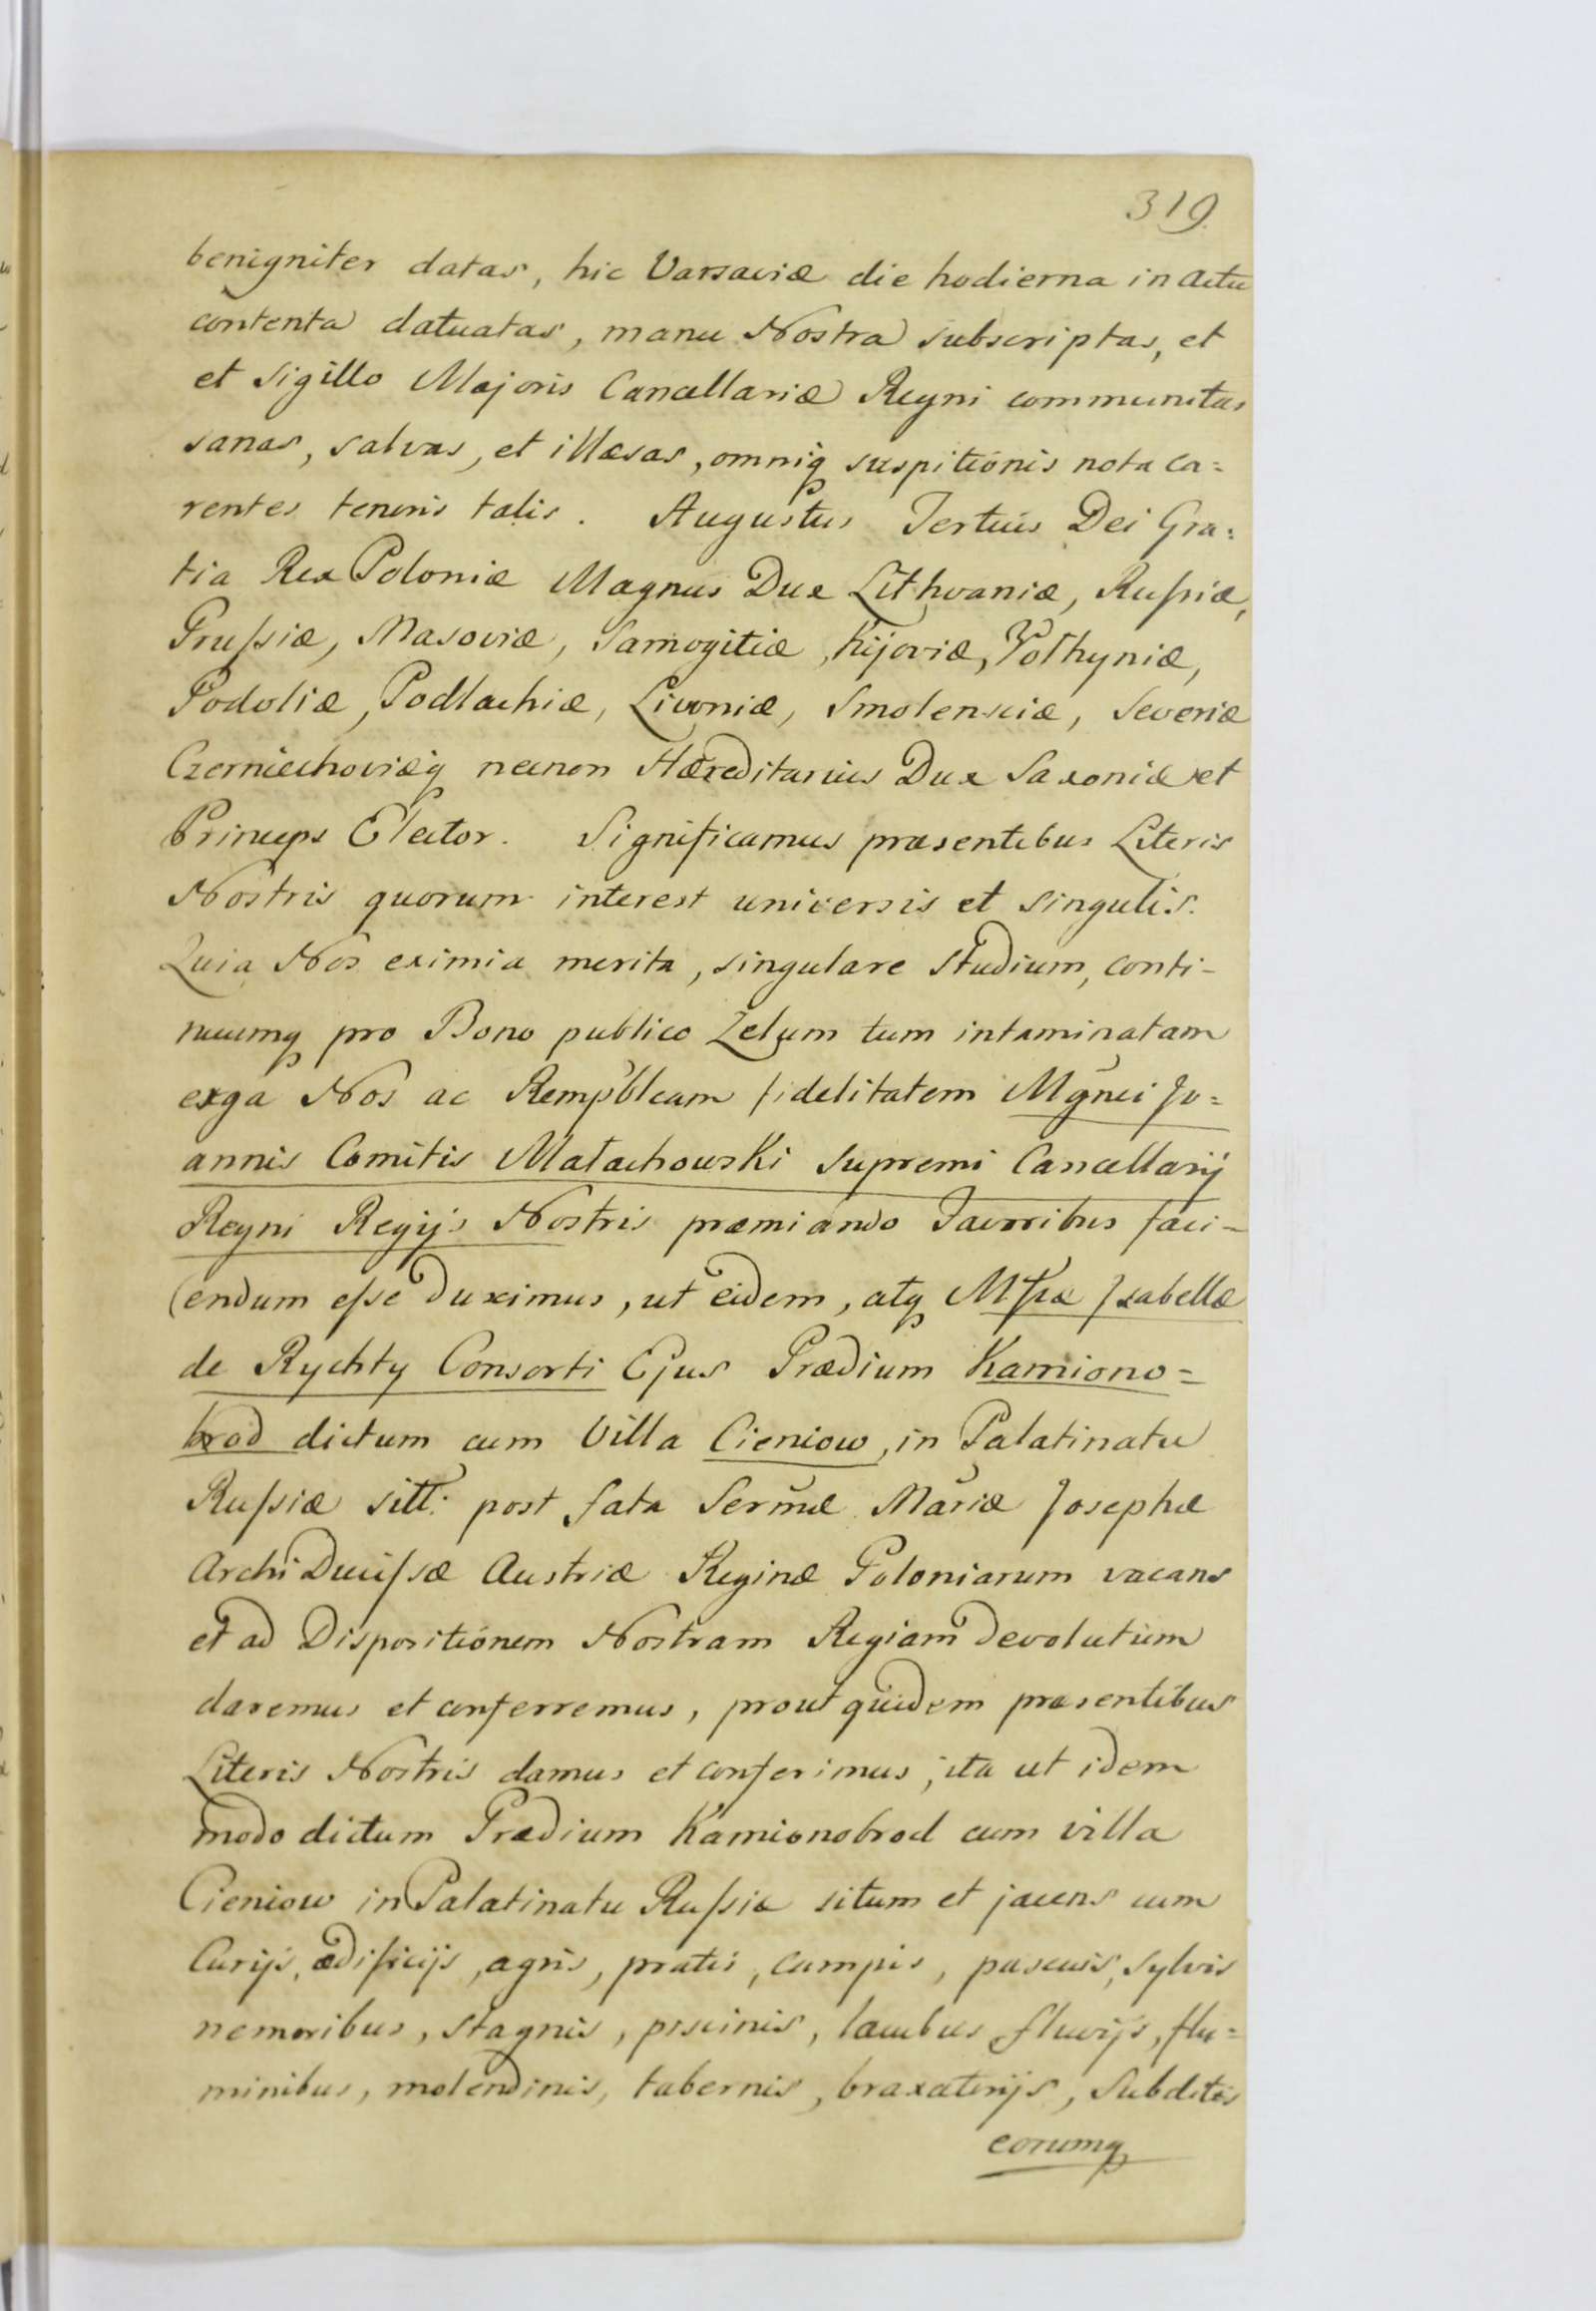 319.
benigniter datas, hic Varsaviæ die hodierna in Actu
contenta datuatas, manu Nostra subscriptas, et
et Sigillo Majoris Cancellariæ Regni communitas
sanas, salvas, et illæsas, omniq suspitionis nota ca=
rentes tenoris talis. Augustus Tertius Dei Gra=
tia Rex Poloniæ Magnus Dux Lithvaniæ, Rußiæ,
Prußiæ, Masoviæ, Samogitiæ, Kijoviæ, Volhyniæ,
Podoliæ, Podlachiæ, Livoniæ, Smolensciæ, Severiæ
Czerniechoviæq necnon Hæreditarius Dux Saxoniæ et
Princeps Elector. Significamus præsentibus Literis
Nostris quorum interest universis et singulis.
Quia Nos eximia merita, singulare studium, conti-
nuumq pro Bono publico Zelum tum intaminatam
erga Nos ac Rempblcam fidelitatem Mgnci Jo=
annis Comitis Małachowski Supremi Cancellarij
Regni Regijs Nostris præmiando Favoribus faci-
endum eße duximus, ut eidem, atq Mffcæ Izabellæ
de Rychty Consorti Ejus Prædium Kamiono=
brod dictum cum Villa Cieniow, in Palatinatu
Rußiæ sitt: post fata Sermæ Mariæ Josephæ
Archi Ducißæ Austriæ Reginæ Poloniarum vacans
et ad Dispositionem Nostram Regiam devolutum
daremus et conferremus, prout quidem præsentibus
Literis Nostris damus et conferimus, ita ut idem
modo dictum Prædium Kamionobrod cum villa
Cieniow in Palatinatu Rußiæ situm et jacens cum
Curijs, ædificijs, agris, pratis, campis, pascuis, sylvis
nemoribus, stagnis, piscinis, lacubus fluvijs, flu=
minibus, molendinis, tabernis, braxatorijs, Subditis
eorumq